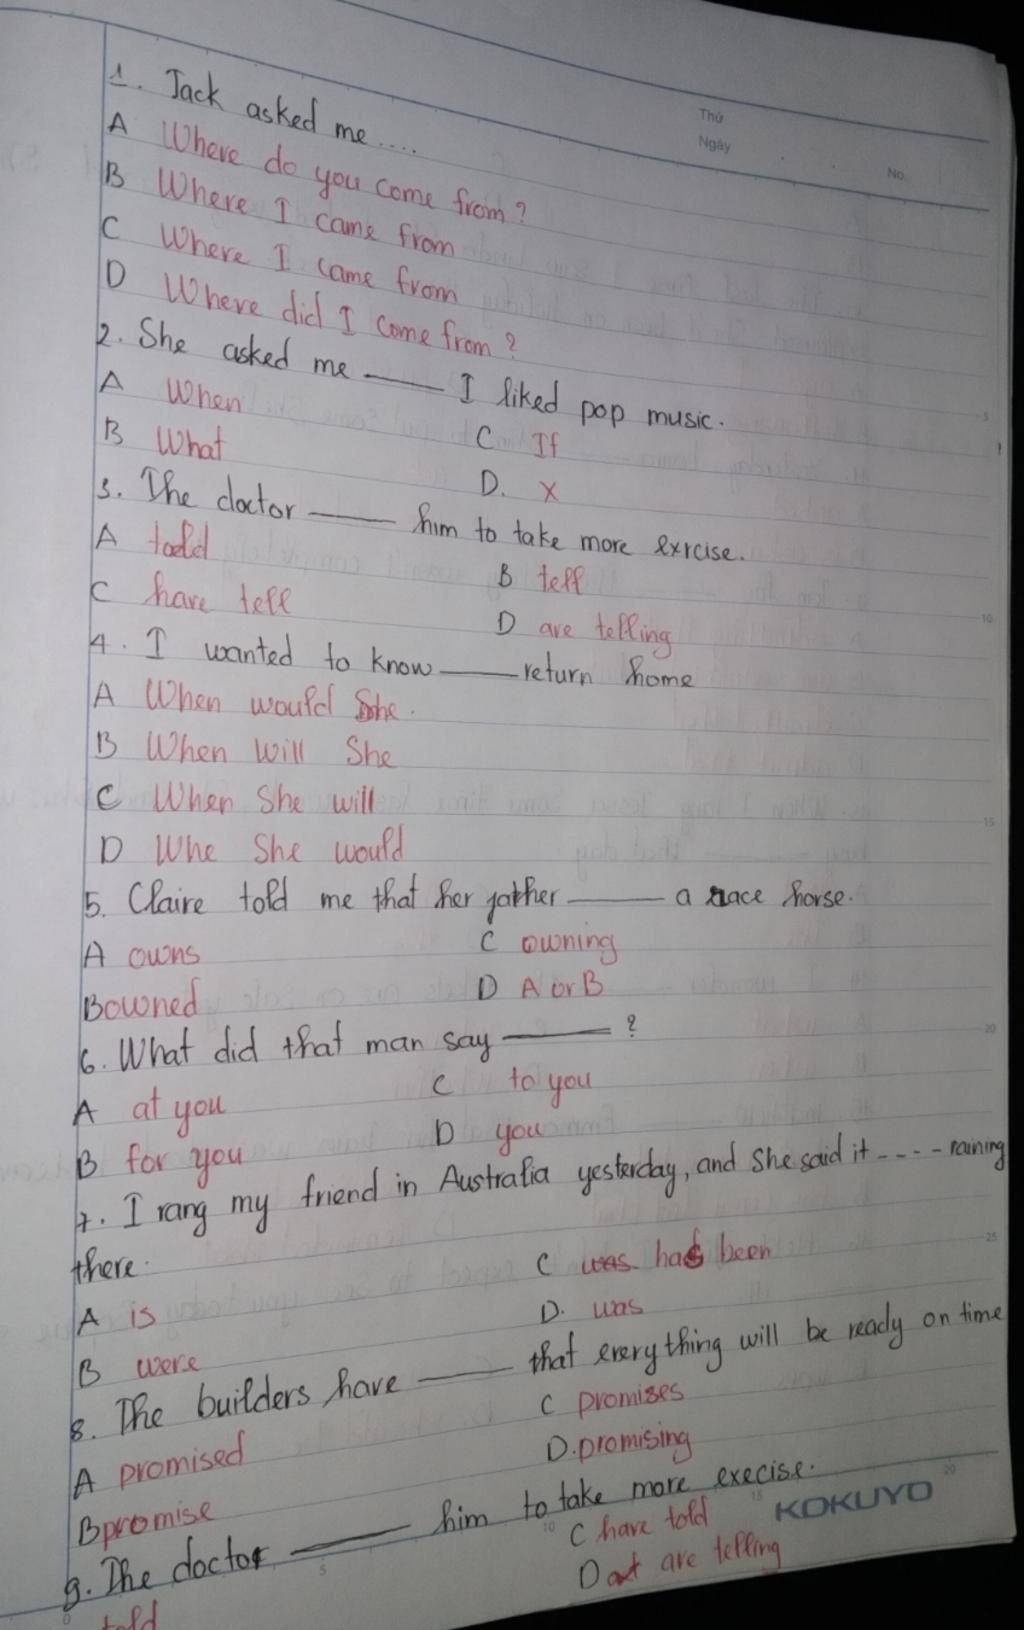 Thứ
Ngày
No.
1. Jack asked me....
A Where do you come from?
B Where I came from
C Where I came from
D Where did I come from?
2. She asked me ____ I liked pop music.
A When
B What
C If
D. X
3. The doctor ____ him to take more exrcise.
A told
B tell
C have tell
D are telling
4. I wanted to know ____ return home
A When would She.
B When will She
C When She will
D Whe She would
5. Claire told me that her father ____ a race horse.
A owns
C owning
B owned
D A or B
6. What did that man say ____?
A at you
C to you
B for you
D you
7. I rang my friend in Australia yesterday, and She said it ---- raining
there.
A is
C has been
B were
D. was
8. The builders have ____ that everything will be ready on time
A promised
C promises
B promise
D. promising
9. The doctor ____ him to take more execise.
C have told
D are telling
told
KOKUYO
5
10
15
20
25
5
10
15
20
0